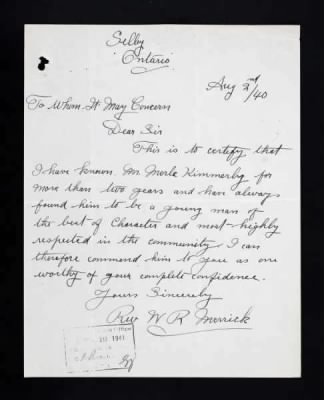 Selby
Ontario
Aug 2nd/40
To Whom It May Concern
Dear Sir
This is to certify that
I have known Mr Merle Kimmerly for
more than two years and have always
found him to be a young man of
the best of Character and most highly
respected in the community I can
therefore commend him to you as one
worthy of your complete confidence.
Yours Sincerely
Rev W R Merrick
1941